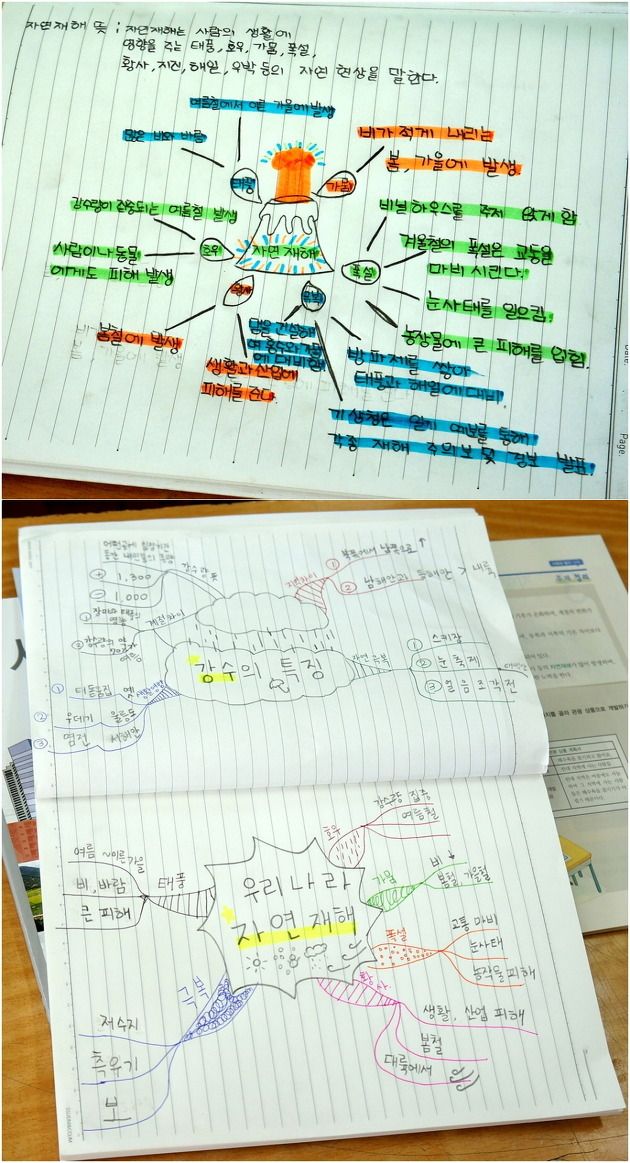 자연재해 뜻 : 자연재해는 사람의 생활에
영향을 주는 태풍, 호우, 가뭄, 폭설,
황사, 지진, 해일, 우박 등의 자연 현상을 말한다.
여름철에서 이른 가을에 발생
많은 비와 바람
태풍
비가 적게 내리는
봄, 가을에 발생.
가뭄
강수량이 집중되는 여름철 발생
사람이나 동물
에게도 피해 발생
호우
자연재해
비닐하우스를 주저 앉게 함
겨울철의 폭설은 교통을
마비 시킨다.
폭설
눈사태를 일으킴.
농장물에 큰 피해를 입힘.
황사
봄철에 발생
생활과 산업에
피해를 준다.
댐을 건설해
방파제를 쌓아
태풍과 해일에 대비.
기상청은 일기 예보를 통해
각종 재해 주의보 및 경보 발표.
Page.
강수량 뜻
+ 1,300
- 1,000
계절차이
지역차이
① 북쪽에서 남쪽으로 ↑
② 남해안과 동해안 > 내륙
강수의 특징
① 스키장
② 눈 축제
③ 얼음조각전
① 터돋움집 옛
생활모습
② 우데기 울릉도
③ 염전 서해안
우리나라
자연재해
호우
강수량 집중
여름철
가뭄
비 ↓
봄철 가을철
폭설
교통 마비
눈사태
농작물 피해
황사
생활, 산업 피해
봄철
대륙에서
태풍
여름 ~이른가을
비, 바람
큰 피해
극복
저수지
측우기
보